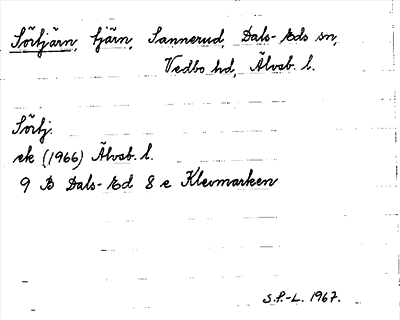 Sörtjärn, tjärn, Sannerud, Dals-Eds sn,
Vedbo hd, Älvsb. l.
Sörtj.
ek (1966) Älvsb. l.
9 B Dals-Ed 8 e Klevmarken
S.P.-L. 1967.